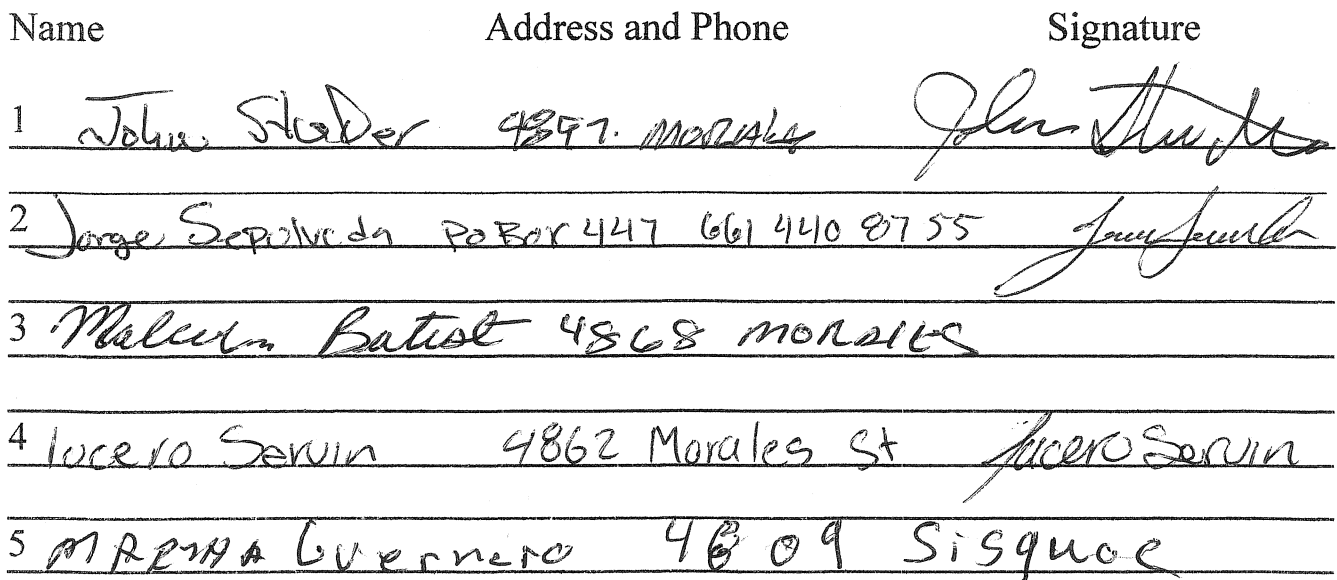 Name Address and Phone Signature
1 John Studer 4897. MORALES John
2 Jorge Sepolveda PO Box 447 661 440 8755
3 Malcolm Batist 4868 MORALES
4 lucero Servin 4862 Morales St Lucero Servin
5 MARTHA Guerrero 4809 Sisquoc